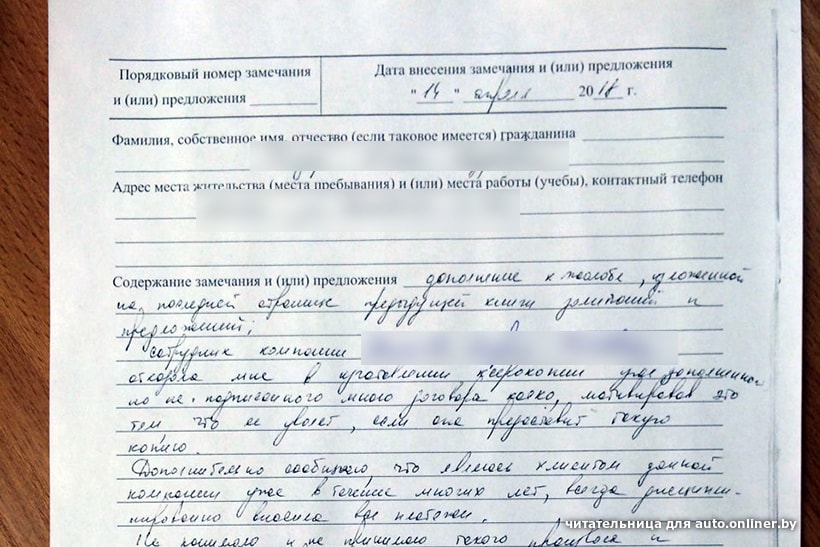 Порядковый номер замечания
и (или) предложения
Дата внесения замечания и (или) предложения
"14" апреля 2018 г.
Фамилия, собственное имя, отчество (если таковое имеется) гражданина
Адрес места жительства (места пребывания) и (или) места работы (учебы), контактный телефон
Содержание замечания и (или) предложения дополнение к жалобе, изложенной
на последней странице предыдущей книги замечаний и
предложений;
сотрудник компании
отказала мне в изготовлении ксерокопии уже заполненного
но не подписанного мною договора каско, мотивировав это
тем что ее уволят, если она предоставит такую
копию.
Дополнительно сообщаю, что являюсь клиентом данной
компании уже в течение многих лет, всегда дисципли-
нированно вносила все платежи.
Не понимаю и не принимаю такого процесса и
читательница для auto.onliner.by